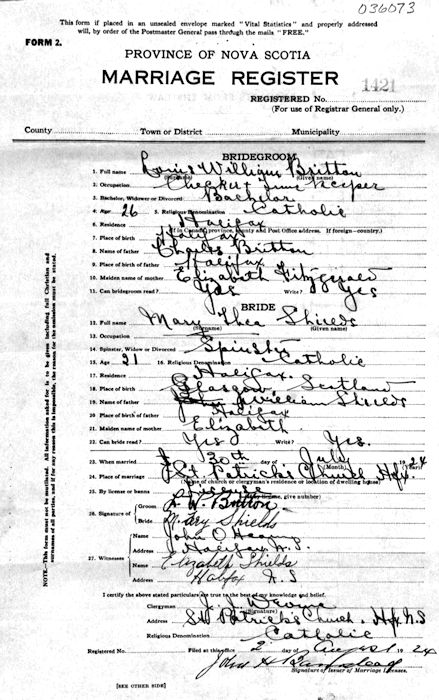 036073
This form if placed in an unsealed envelope marked "Vital Statistics" and properly addressed
will, by order of the Postmaster General pass through the mails "FREE."
FORM 2.
PROVINCE OF NOVA SCOTIA
MARRIAGE REGISTER
1421
REGISTERED No.
(For use of Registrar General only.)
County Town or District Municipality
BRIDEGROOM
1. Full name Louis William Britton
(Surname) (Given name)
2. Occupation Checker & Time Keeper
3. Bachelor, Widower or Divorced Bachelor
4. Age 26 5. Religious Denomination Catholic
6. Residence Halifax
(If in Canada, province, county and Post Office address. If foreign—country.)
7. Place of birth Halifax
8. Name of father Charles Britton
9. Place of birth of father Halifax
10. Maiden name of mother Elizabeth Fitzgerald
11. Can bridegroom read? Yes Write? Yes
BRIDE
12. Full name Mary Shields
(Surname) (Given name)
13. Occupation
14. Spinster, Widow or Divorced Spinster
15. Age 21 16. Religious Denomination Catholic
17. Residence Halifax.
18. Place of birth Glasgow Scotland
19. Name of father William Shields
20. Place of birth of father Halifax
21. Maiden name of mother Elizabeth
22. Can bride read? Yes Write? Yes.
23. When married 30th day of July 1924
(Month) (Year)
24. Place of marriage St Patrick's Church Hfx.
(Name of church or clergyman's residence or location of dwelling house)
25. By license or banns License
(If by license, give number)
26. Signature of Groom L. W. Britton
Bride Mary Shields
27. Witnesses Name John O'Hearn
Address Halifax N.S.
Name Elizabeth Shields
Address Halifax N.S
I certify the above stated particulars are true to the best of my knowledge and belief.
Clergyman J. J. Devine
(Signature)
Address St Patrick's Church, Hfx N.S
Religious Denomination Catholic
Registered No. Filed at this office 2 day of August 1924
John H Barnstead
Signature of Issuer of Marriage Licenses.
[SEE OTHER SIDE]
NOTE.—This form must not be mutilated. All information asked for is to be given, including full Christian and
surnames of all parties, and if for any reason this is impossible, the reason for the omission must be stated.